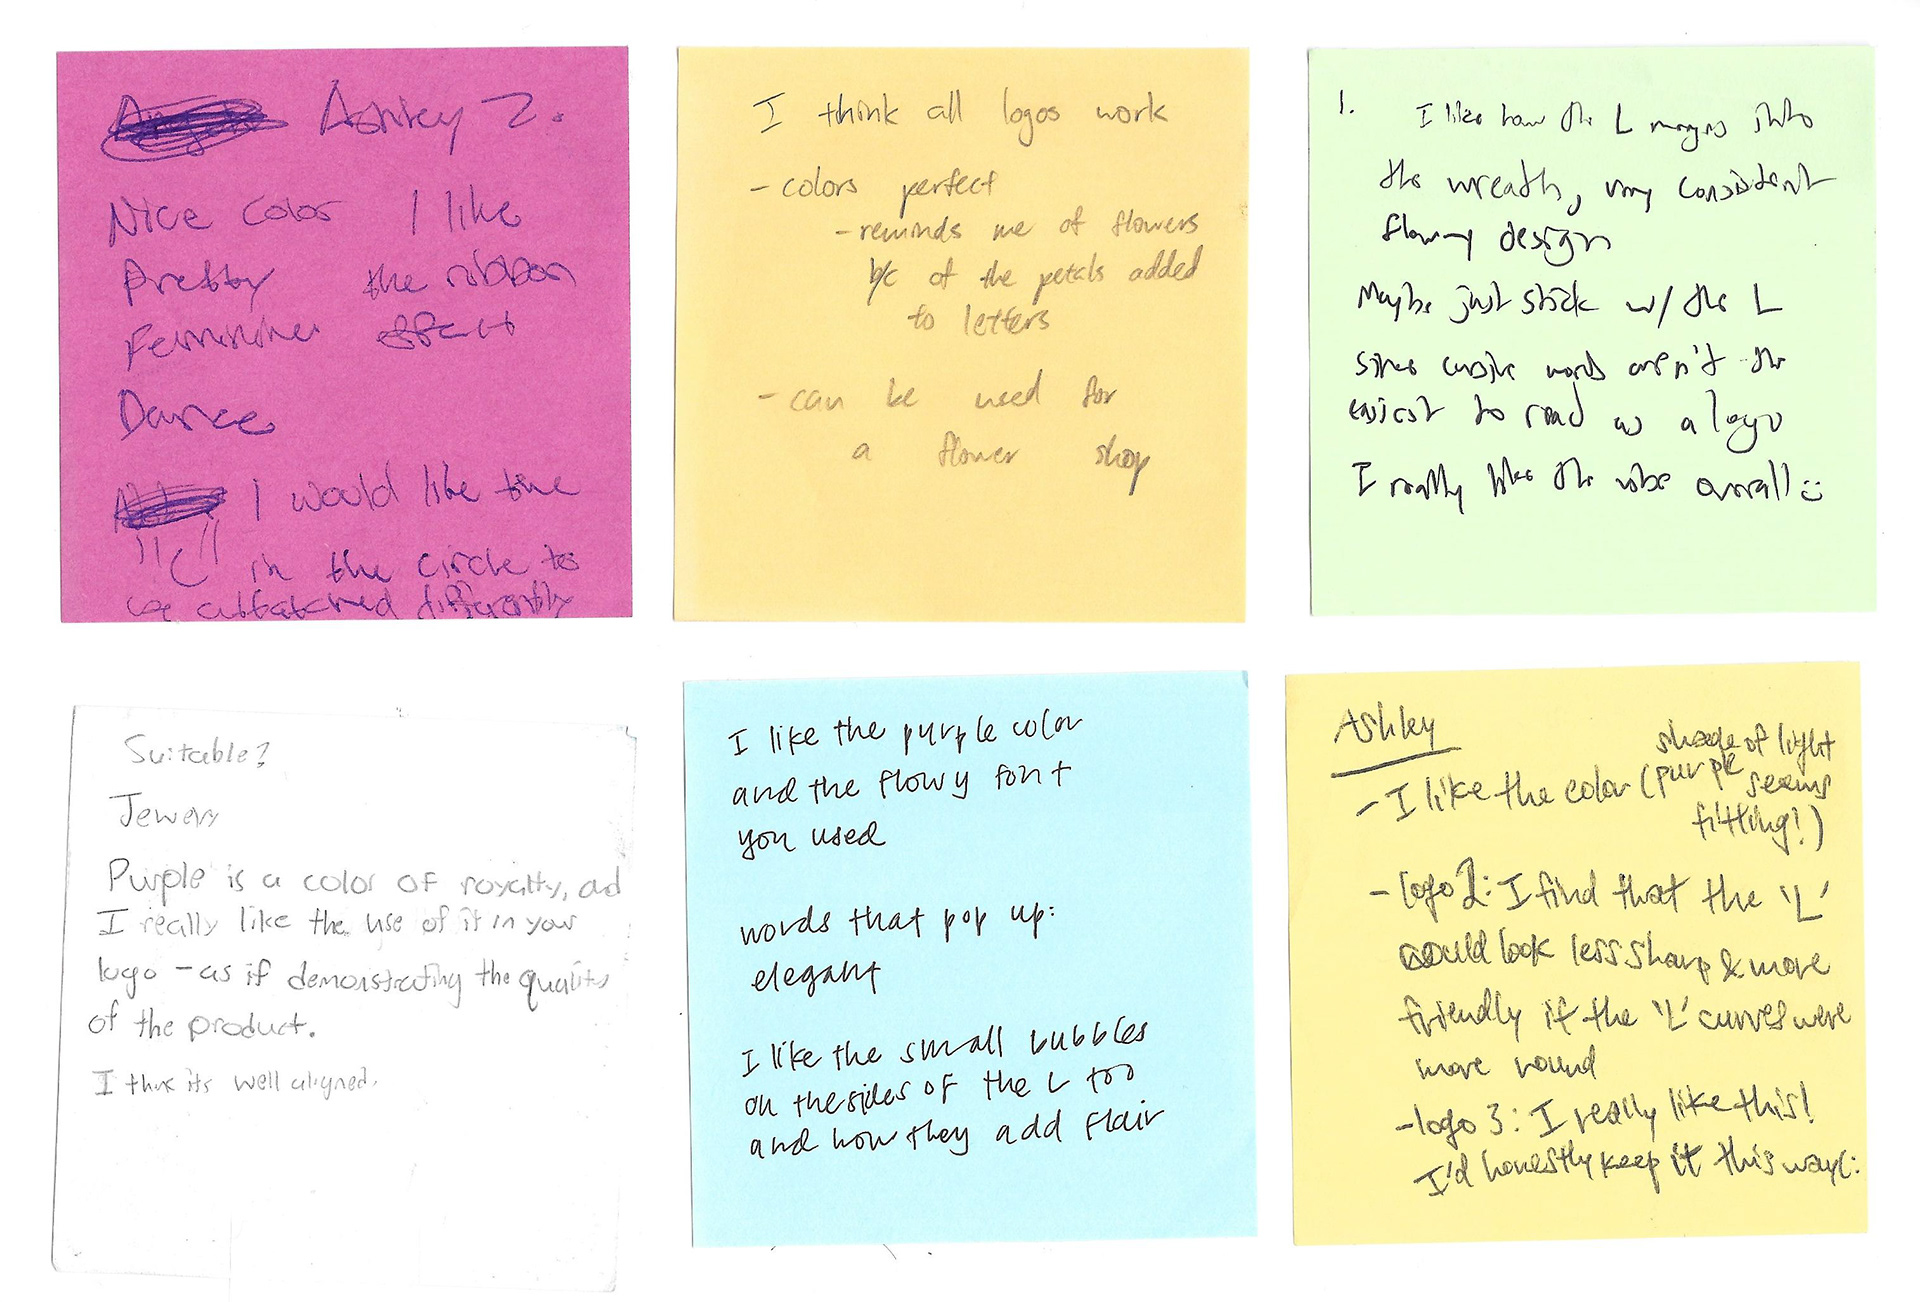 Ashley Z.
Nice color
Pretty
Feminine
Dance
I like
the ribbon
effect
I would like the
"C" in the circle to
be attatched differently
I think all logos work
- colors perfect
- reminds me of flowers
b/c of the petals added
to letters
- can be used for
a flower shop
1. I like how the L merges into
the wreath, very consistent
flowy design
Maybe just stick w/ the L
since cursive words aren't the
easiest to read as a logo
I really like the vibe overall :)
Suitable?
Jewery
Purple is a color of royalty, and
I really like the use of it in your
logo - as if demonstrating the quality
of the product.
I think its well aligned.
I like the purple color
and the flowy font
you used
words that pop up:
elegant
I like the small bubbles
on the sides of the L too
and how they add flair
Ashley
- I like the color (shade of light
purple seems
fitting!)
- logo 2: I find that the 'L'
would look less sharp & more
friendly if the 'L' curves were
more round
- logo 3: I really like this!
I'd honestly keep it this way (: